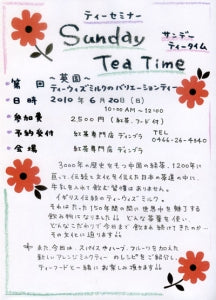 ティーセミナー
Sunday
Tea Time
サンデー
ティータイム
第 回 ～英国～
ティーウィズミルクのバリエーションティー
日時 2010年6月20日(日)
10:00AM～12:00
参加費 2,500円(紅茶、フード付)
予約受付 紅茶専門店ディンブラ TEL
0466-26-4340
会場 紅茶専門店ディンブラ
3000年の歴史をもつ中国の紅茶、1200年に
亘って、伝統と文化を伝えた日本の茶道の中に、
牛乳を入れて飲む習慣はありません。
イギリス式紅茶のティーウィズミルク。
それはたった150年間に世界中を魅了する
飲み物になりました!! どんな茶葉を使い、
どんなこだわりで今日まで飲まれ続けてきたのか…
その文化に迫ります!!
また今回は、スパイスやハーブ、フルーツを加えた
新しいアレンジミルクティーのレシピをご紹介し、
ティーフードと一緒にお楽しみ頂きます!!